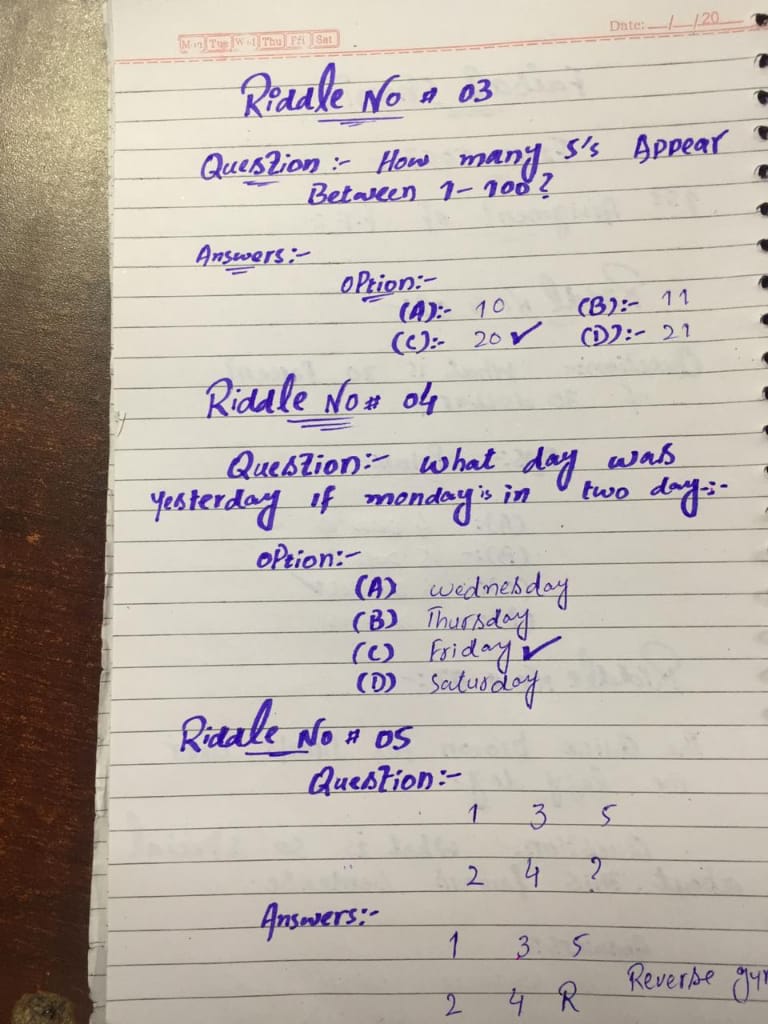 Mon Tue Wed Thu Fri Sat
Date: __/__/20__
Riddle No # 03
Question:- How many 5's Appear
Between 1-100?
Answers:-
Option:-
(A):- 10 (B):- 11
(C):- 20 ✓ (D):- 21
Riddle No # 04
Question:- what day was
yesterday if monday is in two day-:-
Option:-
(A) wednesday
(B) Thursday
(C) Friday ✓
(D) Saturday
Riddle No # 05
Question:-
1 3 5
2 4 ?
Answers:-
1 3 5
Reverse
2 4 R